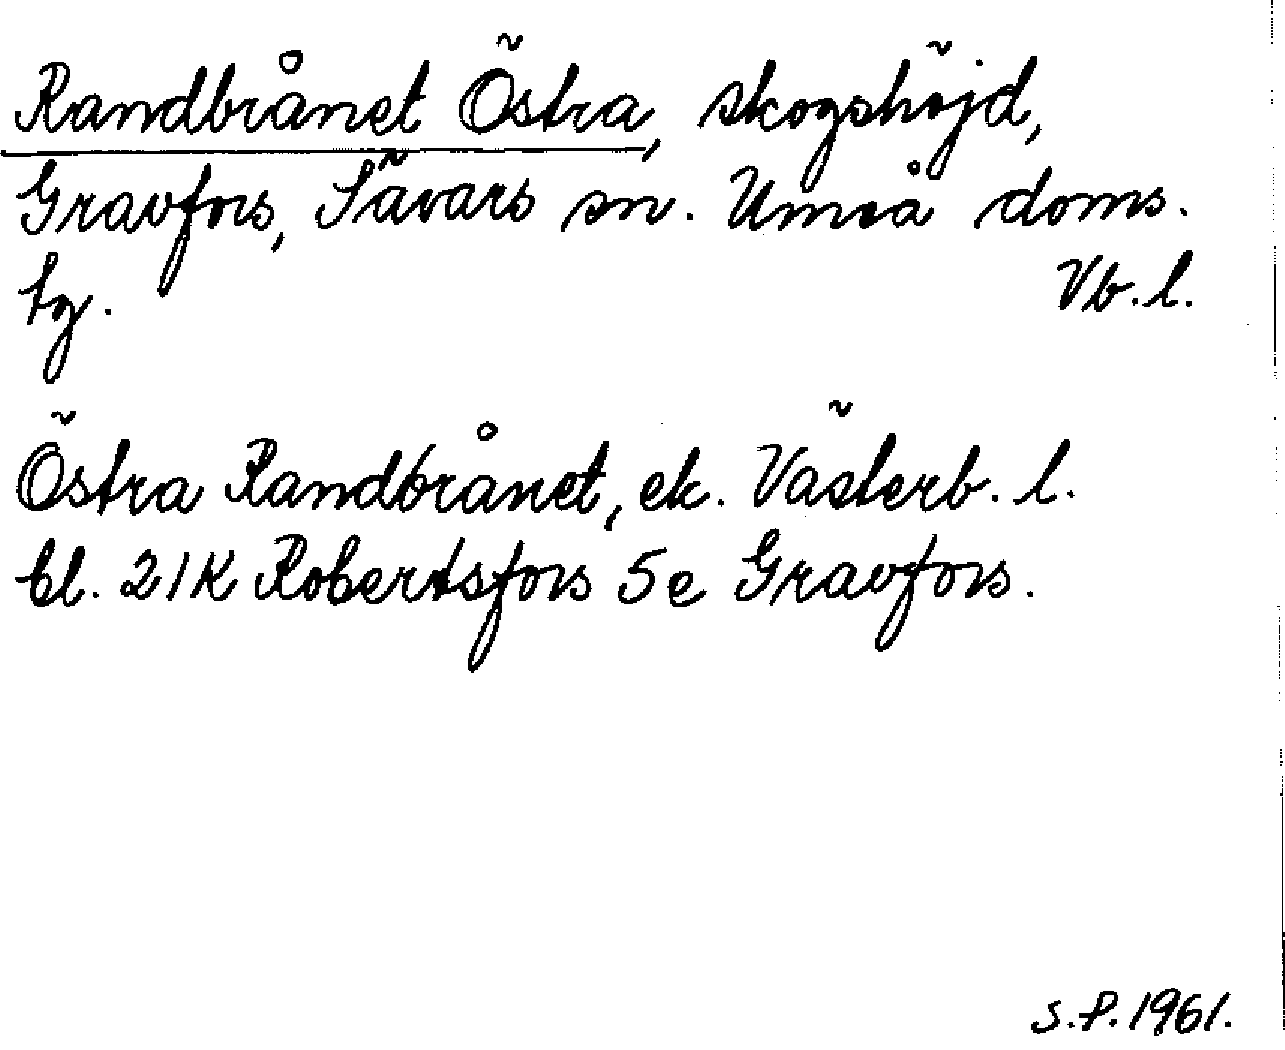 Randbrånet Östra, skogshöjd,
Gravfors, Sävars sn. Umeå doms.
tg. Vb. l.
Östra Randbrånet, ek. Västerb. l.
bl. 21K Robertsfors 5e Gravfors.
S.P. 1961.